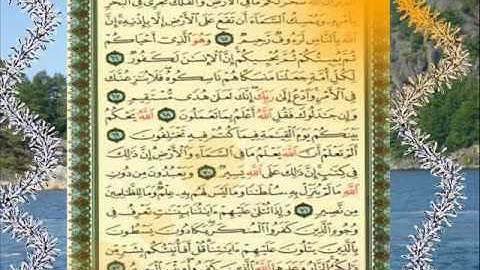 سَخَّرَ لَكُم مَّا فِى ٱلْأَرْضِ وَٱلْفُلْكَ تَجْرِى فِى ٱلْبَحْرِ
بِأَمْرِهِۦ وَيُمْسِكُ ٱلسَّمَآءَ أَن تَقَعَ عَلَى ٱلْأَرْضِ إِلَّا بِإِذْنِهِۦٓ إِنَّ
ٱللَّهَ بِٱلنَّاسِ لَرَءُوفٌ رَّحِيمٌ ٦٥ وَهُوَ ٱلَّذِىٓ أَحْيَاكُمْ
ثُمَّ يُمِيتُكُمْ ثُمَّ يُحْيِيكُمْ إِنَّ ٱلْإِنسَٰنَ لَكَفُورٌ ٦٦
لِّكُلِّ أُمَّةٍ جَعَلْنَا مَنسَكًا هُمْ نَاسِكُوهُ فَلَا يُنَٰزِعُنَّكَ
فِى ٱلْأَمْرِ وَٱدْعُ إِلَىٰ رَبِّكَ إِنَّكَ لَعَلَىٰ هُدًى مُّسْتَقِيمٍ ٦٧
وَإِن جَٰدَلُوكَ فَقُلِ ٱللَّهُ أَعْلَمُ بِمَا تَعْمَلُونَ ٦٨ ٱللَّهُ يَحْكُمُ
بَيْنَكُمْ يَوْمَ ٱلْقِيَٰمَةِ فِيمَا كُنتُمْ فِيهِ تَخْتَلِفُونَ ٦٩
أَلَمْ تَعْلَمْ أَنَّ ٱللَّهَ يَعْلَمُ مَا فِى ٱلسَّمَآءِ وَٱلْأَرْضِ إِنَّ ذَٰلِكَ
فِى كِتَٰبٍ إِنَّ ذَٰلِكَ عَلَى ٱللَّهِ يَسِيرٌ ٧٠ وَيَعْبُدُونَ مِن دُونِ
ٱللَّهِ مَا لَمْ يُنَزِّلْ بِهِۦ سُلْطَٰنًا وَمَا لَيْسَ لَهُم بِهِۦ عِلْمٌ وَمَا لِلظَّٰلِمِينَ
مِن نَّصِيرٍ ٧١ وَإِذَا تُتْلَىٰ عَلَيْهِمْ ءَايَٰتُنَا بَيِّنَٰتٍ تَعْرِفُ فِى
وُجُوهِ ٱلَّذِينَ كَفَرُوا۟ ٱلْمُنكَرَ يَكَادُونَ يَسْطُونَ
بِٱلَّذِينَ يَتْلُونَ عَلَيْهِمْ ءَايَٰتِنَا قُلْ أَفَأُنَبِّئُكُم بِشَرٍّ مِّن
ذَٰلِكُمُ ٱلنَّارُ وَعَدَهَا ٱللَّهُ ٱلَّذِينَ كَفَرُوا۟ وَبِئْسَ ٱلْمَصِيرُ